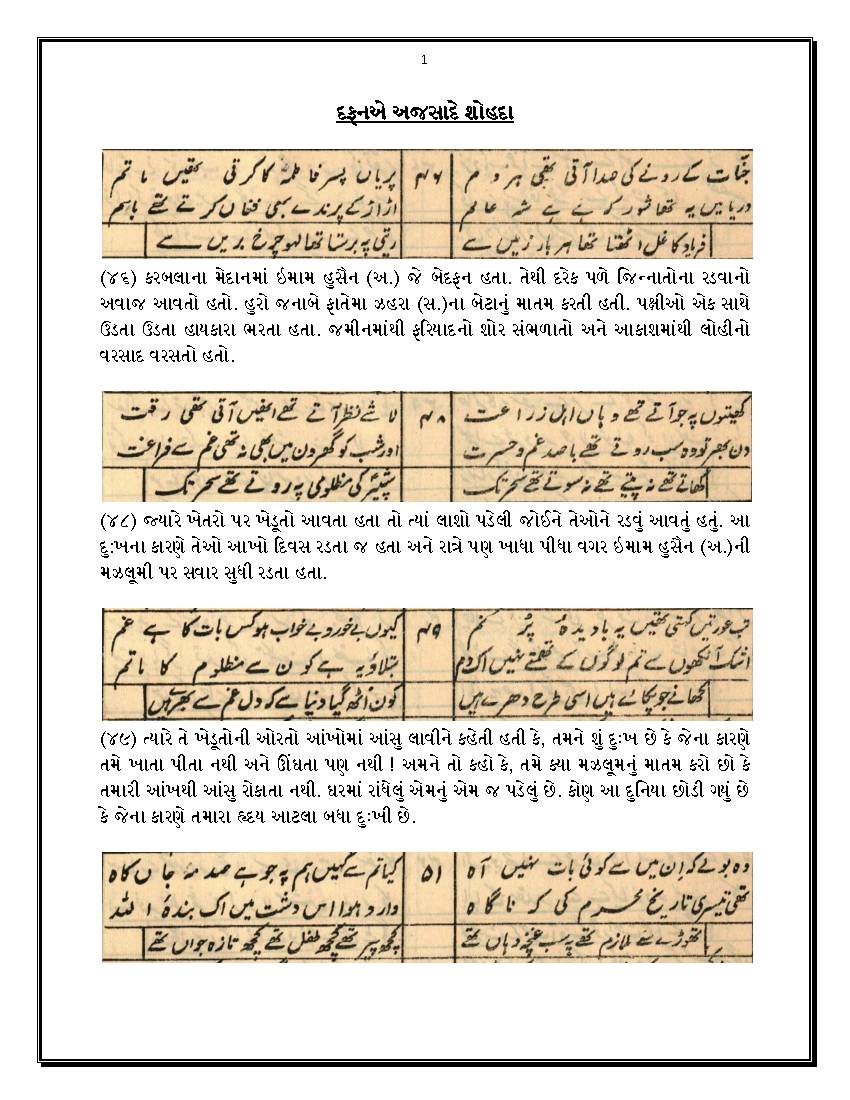 1
દફનએ અજસાદે શોહદા
جنّات کے رونے کی صدا آتی تھی ہر دم ۴۶ پریاں پسرِ فاطمہؑ کا کرتی تھیں ماتم
دریا میں یہ تھا شور کہ ہے ہے شہِ عالم اڑ اڑ کے پرندے بھی فغاں کرتے تھے باہم
فریاد کا غل اٹھتا تھا ہر بار زمیں سے ریتی پہ برستا تھا لہو چرخِ بریں سے
(૪૬) કરબલાના મેદાનમાં ઇમામ હુસૈન (અ.) જે બેદફન હતા. તેથી દરેક પળે જિન્નાતોના રડવાનો
અવાજ આવતો હતો. હુરો જનાબે ફાતેમા ઝહરા (સ.)ના બેટાનું માતમ કરતી હતી. પક્ષીઓ એક સાથે
ઉડતા ઉડતા હાયકારા ભરતા હતા. જમીનમાંથી ફરિયાદનો શોર સંભળાતો અને આકાશમાંથી લોહીનો
વરસાદ વરસતો હતો.
کھیتوں پہ جو آتے تھے وہاں اہلِ زراعت ۴۸ لاشے نظر آتے تھے انھیں آتی تھی رقت
دن بھر تو وہ سب روتے تھے با صد غم و حسرت اور شب کو گھروں میں بھی نہ تھی غم سے فراغت
کھاتے تھے نہ پیتے تھے نہ سوتے تھے سحر تک شبیرؑ کی مظلومی پہ روتے تھے سحر تک
(૪૮) જ્યારે ખેતરો પર ખેડૂતો આવતા હતા તો ત્યાં લાશો પડેલી જોઈને તેઓને રડવું આવતું હતું. આ
દુ:ખના કારણે તેઓ આખો દિવસ રડતા જ હતા અને રાત્રે પણ ખાધા પીધા વગર ઇમામ હુસૈન (અ.)ની
મઝલૂમી પર સવાર સુધી રડતા હતા.
تب عورتیں کہتی تھیں یہ با دیدۂ پُر نم ۴۹ کیوں بے خور و بے خواب ہو کس بات کا ہے غم
اشک آنکھوں سے تم لوگوں کے تھمتے نہیں اک دم بتلاؤ یہ ہے کون سے مظلوم کا ماتم
کھانے جو پکائے ہیں اسی طرح دھرے ہیں کون اٹھ گیا دنیا سے کہ دل غم سے بھرے ہیں
(૪૯) ત્યારે તે ખેડૂતોની ઓરતો આંખોમાં આંસુ લાવીને કહેતી હતી કે, તમને શું દુઃખ છે કે જેના કારણે
તમે ખાતા પીતા નથી અને ઊંઘતા પણ નથી ! અમને તો કહો કે, તમે ક્યા મઝલૂમનું માતમ કરો છો કે
તમારી આંખથી આંસુ રોકાતા નથી. ઘરમાં રાંધેલું એમનું એમ જ પડેલું છે. કોણ આ દુનિયા છોડી ગયું છે
કે જેના કારણે તમારા હૃદય આટલા બધા દુઃખી છે.
وہ بولے کہ ان میں سے کوئی بات نہیں آہ ۵۱ کیا تم سے کہیں ہم پہ جو ہے صدمۂ جاں کاہ
تھی تیسری تاریخ محرم کی کہ ناگاہ وارد ہوا اس دشت میں اک بندۂ اللہ
تھوڑے سے ملازم تھے پہ سب غنچہ دہاں تھے کچھ پیر تھے کچھ طفل تھے کچھ تازہ جواں تھے